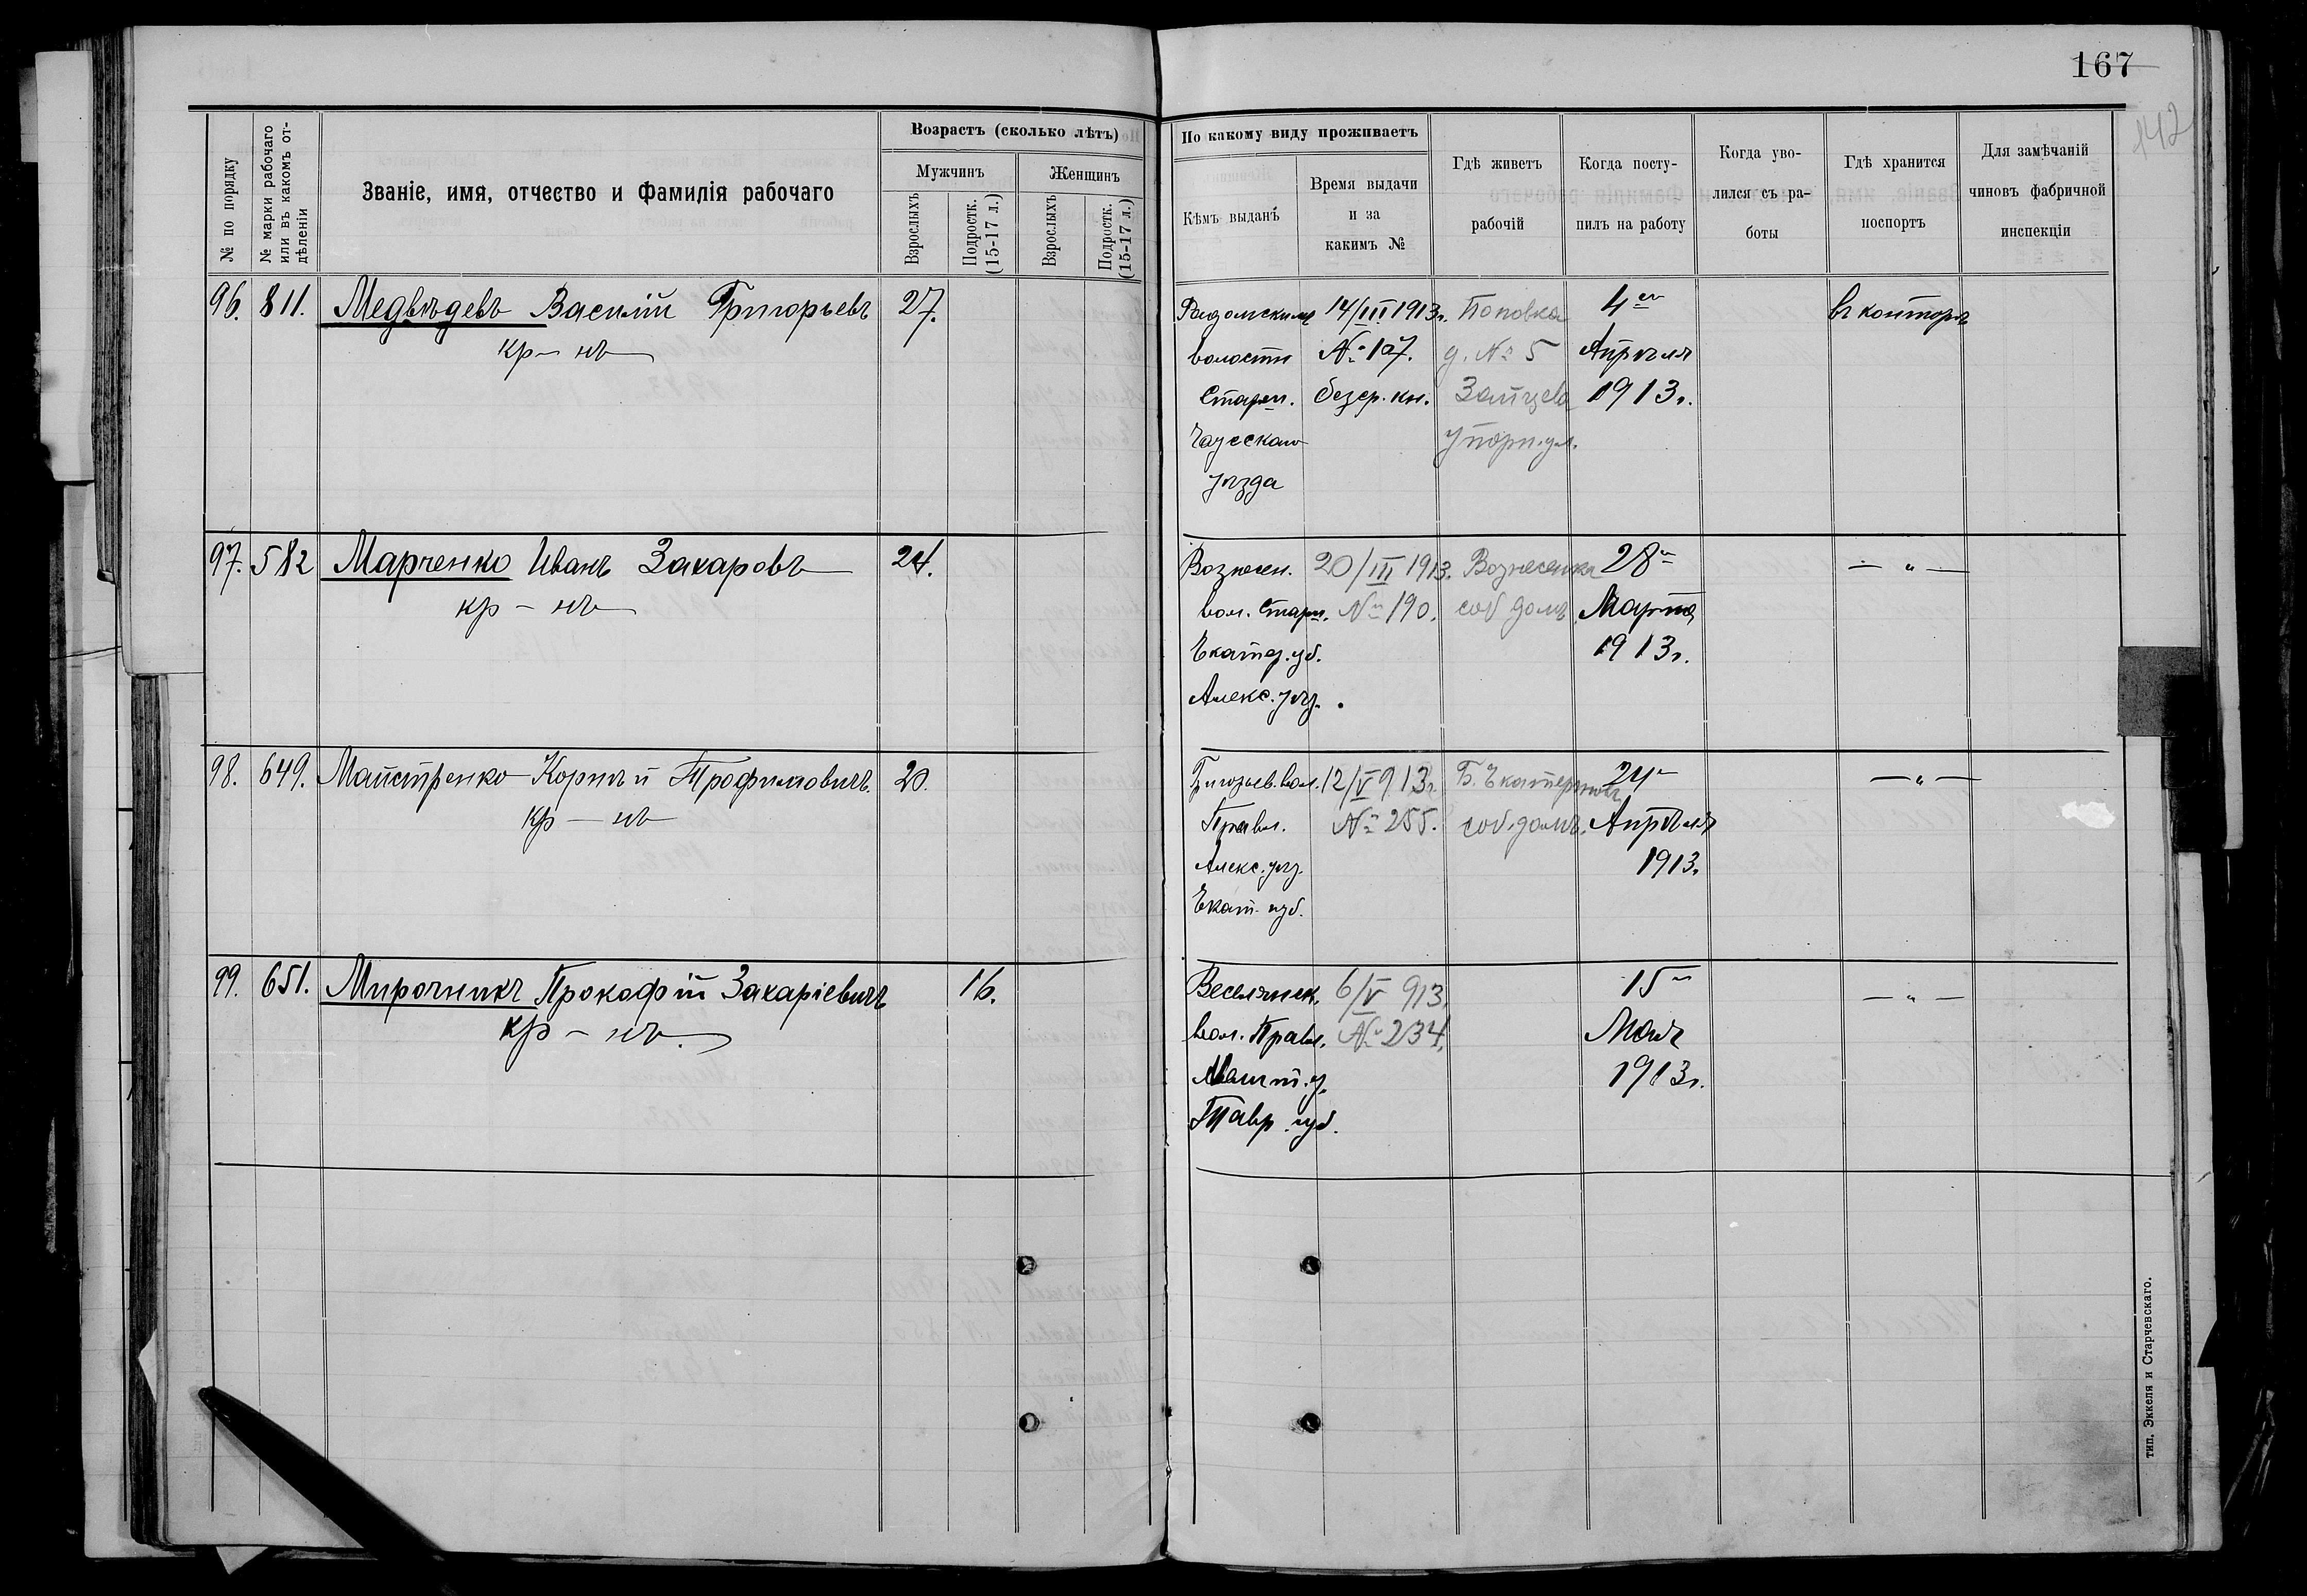 167
142
№ по порядку
№ марки рабочаго
или въ какомъ от-
дѣленіи
Званіе, имя, отчество и фамилія рабочаго
Возрастъ (сколько лѣтъ)
Мужчинъ
Женщинъ
Взрослыхъ
Подростк.
(15-17 л.)
Взрослыхъ
Подростк.
(15-17 л.)
По какому виду проживаетъ
Кѣмъ выданъ
Время выдачи
и за
какимъ №
Гдѣ живетъ
рабочій
Когда посту-
пилъ на работу
Когда уво-
лился съ ра-
боты
Гдѣ хранится
поспортъ
Для замѣчаній
чиновъ фабричной
инспекціи
96. 811. Медвѣдевъ Василій Григорьевъ 27.
кр-нъ
Радомскимъ
волостн
Старш.
Чаусскаго
уѣзда
14/III 1913г.
№ 107.
безср. кн.
Поповка
д. № 5
Зайцева
4го
Апрѣля
1913г.
въ конторѣ
97. 582 Марченко Иванъ Захаровъ 24.
кр-нъ
Вознесен.
вол. Старш.
Екатер. губ.
Алекс. уѣз.
20/III 1913.
№ 190.
Вознесенка
соб домъ
28го
Марта
1913г.
— " —
98. 649. Майстренко Корнѣй Трофимовичъ. 20.
кр-нъ
Григорьев. вол.
Правл.
Алекс. уѣз.
Екат. губ.
12/V 913г
№ 255.
соб. домъ.
24го
Апрѣля
1913г
— " —
99. 651. Мирошникъ Прокофій Захаріевичъ 16.
кр-нъ
Веселянск.
вол. Правл.
Мелит. у.
Тавр. губ.
6/V 913.
№ 234.
15го
Мая
1913г.
— " —
тип. Эккеля и Старчевскаго.